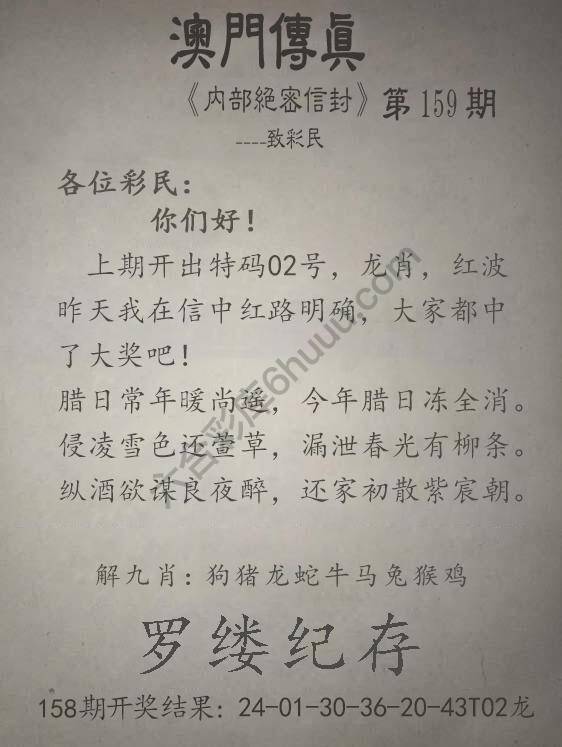 澳門傳眞
《内部絕密信封》第159期
----致彩民
各位彩民：
你们好！
上期开出特码02号，龙肖，红波
昨天我在信中红路明确，大家都中
了大奖吧！
腊日常年暖尚遥，今年腊日冻全消。
侵凌雪色还萱草，漏泄春光有柳条。
纵酒欲谋良夜醉，还家初散紫宸朝。
六合彩库6huuu.com
解九肖：狗猪龙蛇牛马兔猴鸡
罗缕纪存
158期开奖结果：24-01-30-36-20-43T02龙